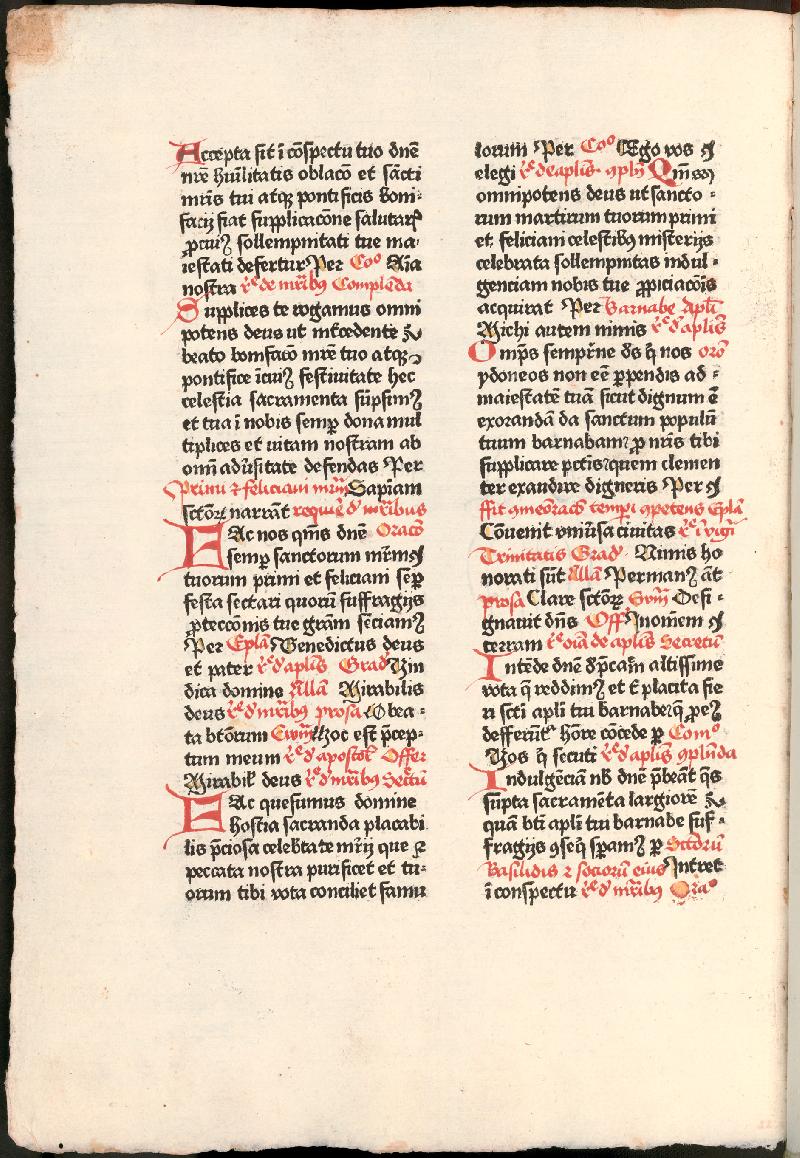 Accepta sit ī cōspectu tuo dn̄e
nr̄e hūilitatis oblacō et sācti
mr̄is tui atqꝫ pontificis Boni-
facij fiat supplicacōne salutarꝭ
ꝓcuiꝫ sollempnitati tue ma-
iestati defertur Per Coō Aīa
nostra rͤ de mr̄ibꝰ Complēda
Supplices te rogamus omni
potens deus ut īt̄cedente
beato bonifacō mr̄e tuo atqꝫ
pontifice īcuiꝫ festiuitate hec
celestia sacramenta sūpsimꝫ
et tua ī nobis semꝑ dona mul
tiplices et uitam nostram ab
om̄i adūsitate defendas Per
Primi ⁊ feliciani mr̄m Sapiam
sctōꝝ narrāt require d' mr̄ibus
FAc nos qm̄s dn̄e Oracō
semꝑ sanctorum mr̄m
tuorum primi et feliciani seꝑ
festa sectari quorū suffragijs
ꝓteccōnis tue grām sēciamꝫ
Per Epl̄a Benedictus deus
et pater rͤ d' apl̄is Grad' Vin
dica domine All̄a Mirabilis
deus rͤ d' mr̄ibꝰ prosa O bea-
ta bt̄orum Ewm̄ Hoc est p̄cep-
tum meum rͤ d' apostol̄ Offer
Mirabil̄ deus rͤ d' mr̄ibꝰ Secr̄tū
HAc quesumus domine
hostia sacranda placabi
lis p̄ciosa celebrtate mr̄ij que ⁊
peccata nostra purificet et tu-
orum tibi vota conciliet famu
lorum Per Coō Ego vos
elegi rͤ de apl̄is ꝯpln̄ Qm̄s
omnipotens deus ut sancto-
rum martirum tuorum primi
et feliciani celestibꝰ misterijs
celebrata sollempnitas indul-
genciam nobis tue ꝓpiciacōis
acquirat Per Barnabe Apl̄i
Michi autem nimis rͤ d' apl̄is
Omp̄s sempr̄ne ds̄ q̄ nos orō
ydoneos non eē ꝑpendis ad-
maiestatē tuā sicut dignum ē
exorandā da sanctum populū
tuum barnabam ꝓ nr̄is tibi
supplicare pctīs quem clemen
ter exaudire digneris Per
ffit ꝯmēoracō tempī ꝯpetens Epl̄a
Cōuenit vniūsa ciuitas rͤ ī vigī
Trinitatis Grad' Nimis ho
norati sūt All̄a Permanꝫ āt
prosa Clare sctōꝝ Ewm̄ Desi-
gnauit dn̄s Off' In omēm
terram rͤ oīa de apl̄is Secretū
Intēde dn̄e dp̄cam̄ altissime
vota q̄ reddimꝫ et t̄ placita fie
ri scti apl̄i tui barnabe q̄ ꝓ eꝫ
defferūt' hōre cōcede ꝑ Comō
Vos q̄ secuti rͤ d' apl̄is ꝯpln̄da
Indulgēciā nb̄ dn̄e p̄beāt q̄s
sūpta sacramēta largiorē
quā bt̄i apl̄i tui barnabe suf-
fragijs ꝯseq̄ speramꝫ ꝑ Sctōrū
Basilidis ⁊ sociorū eius Intret
ī conspectu rͤ d' mr̄ibꝰ Orāō